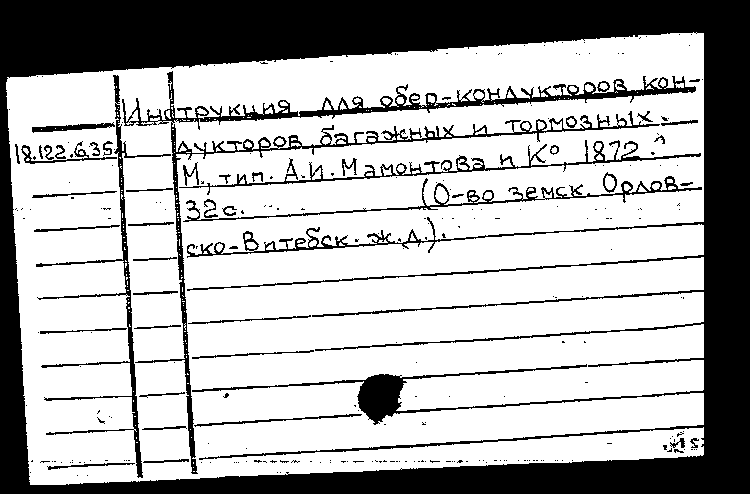 Инструкция для обер-кондукторов, кон-
18.122.6.354 дукторов, багажных и тормозных.
М., тип. А.И. Мамонтова и К°, 1872.
32с. (О-во земск. Орлов-
ско-Витебск. ж.д.).